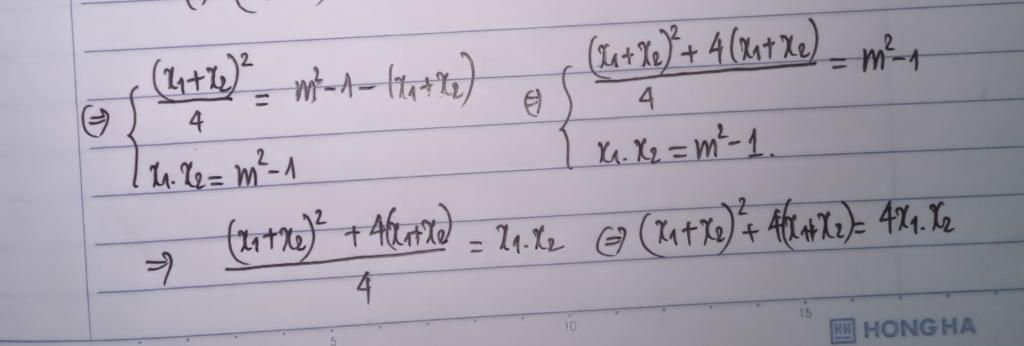 (⇔) { (x₁+x₂)²/4 = m²-1-(x₁+x₂) (⇔) { ((x₁+x₂)²+4(x₁+x₂))/4 = m²-1
x₁.x₂ = m²-1 x₁.x₂ = m²-1.
⇒ ((x₁+x₂)²+4(x₁+x₂))/4 = x₁.x₂ (⇔) (x₁+x₂)²+4(x₁+x₂) = 4x₁.x₂
5 10 15
HH HONG HA